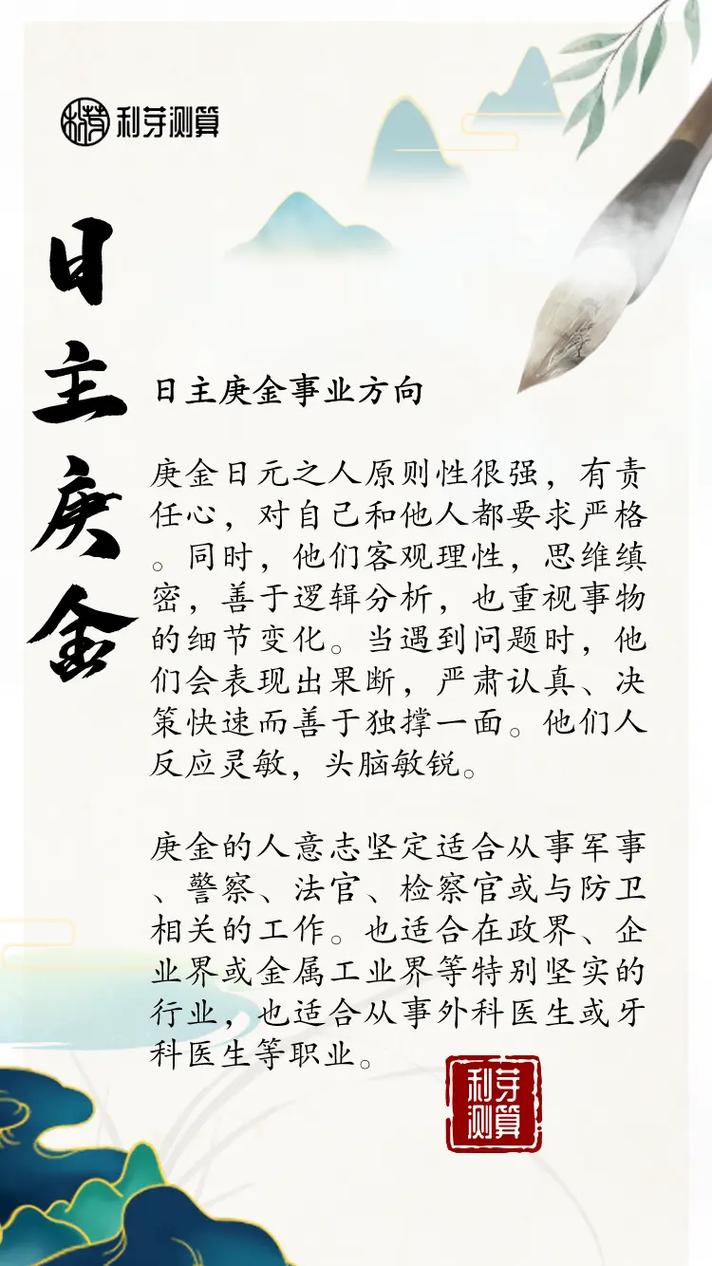 利芽测算
日主庚金
日主庚金事业方向
庚金日元之人原则性很强，有责
任心，对自己和他人都要求严格
。同时，他们客观理性，思维缜
密，善于逻辑分析，也重视事物
的细节变化。当遇到问题时，他
们会表现出果断，严肃认真、决
策快速而善于独撑一面。他们人
反应灵敏，头脑敏锐。
庚金的人意志坚定适合从事军事
、警察、法官、检察官或与防卫
相关的工作。也适合在政界、企
业界或金属工业界等特别坚实的
行业，也适合从事外科医生或牙
科医生等职业。
利芽
测算